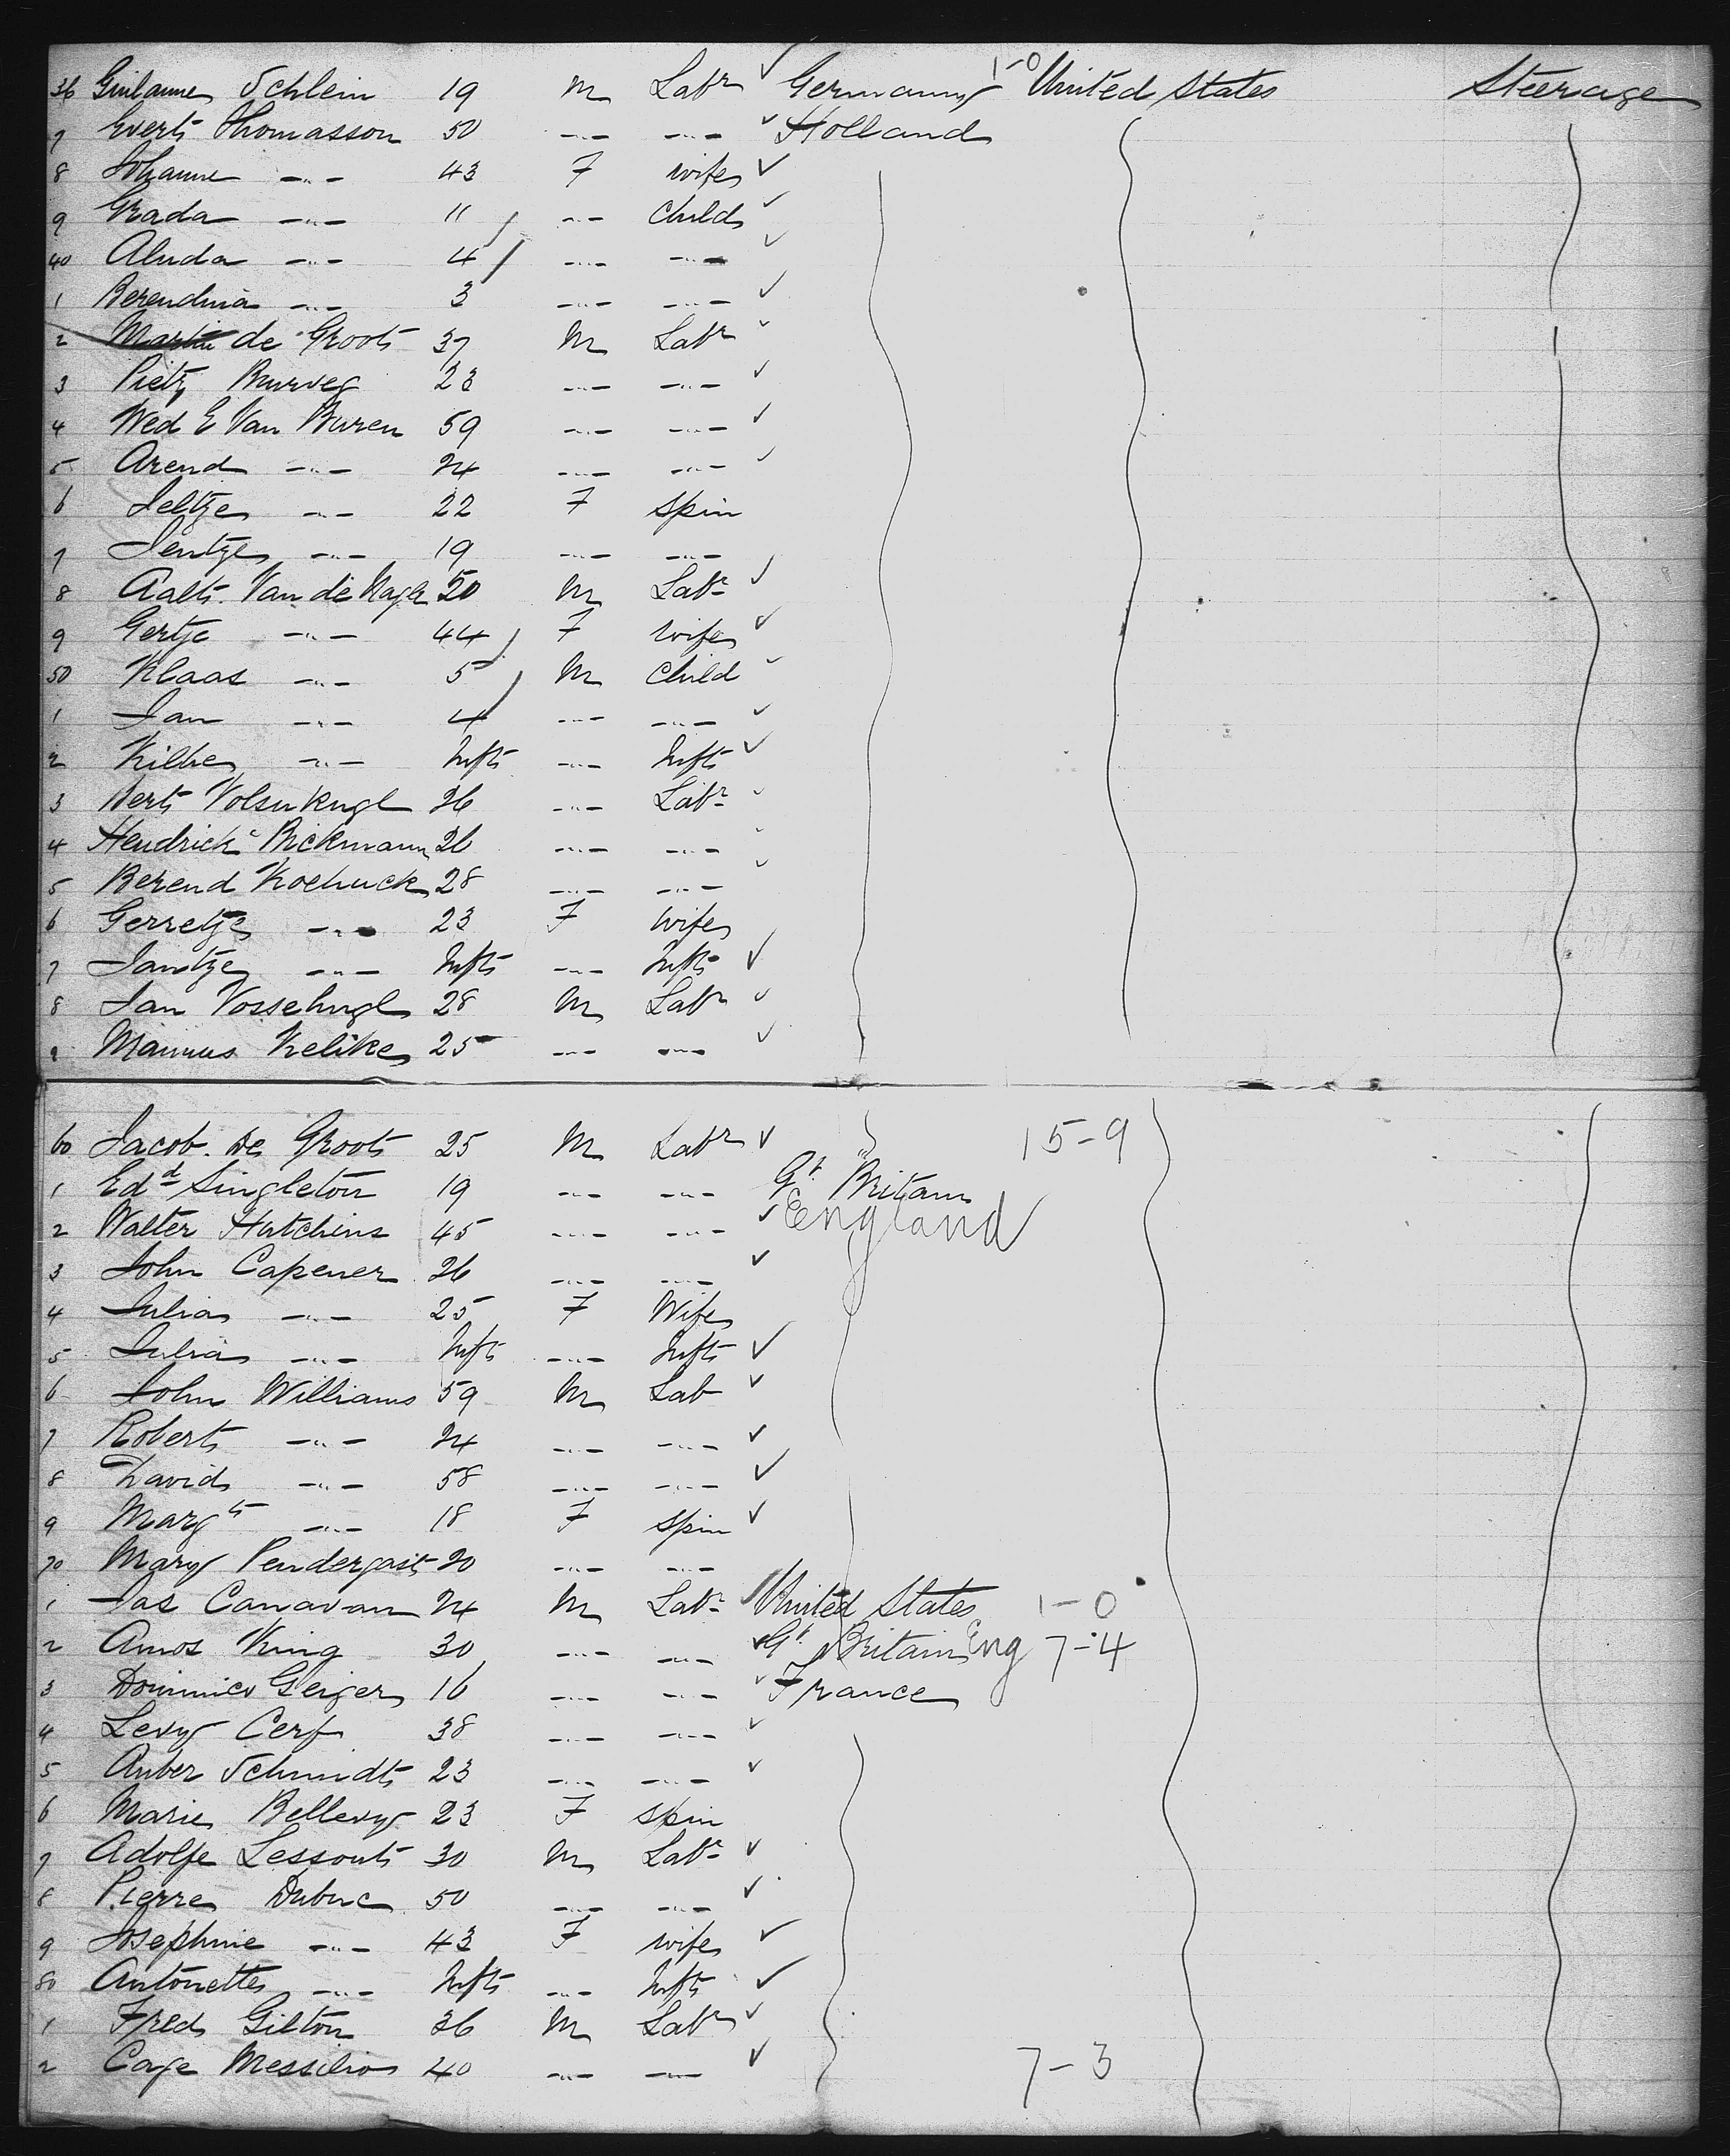 36 Guilaume Schlein 19 M Labr ✓ Germany 1-0 United States Steerage
7 Evert Thomasson 50 -"- -"- ✓ Holland
8 Johanne -"- 43 F wife ✓
9 Grada -"- 11 -"- Child ✓
40 Aluda -"- 4 -"- -"- ✓
1 Berendina -"- 3 -"- -"- ✓
2 Martin de Groot 37 M Labr ✓
3 Pietz 23 -"- -"- ✓
4 Wed E Van Buren 59 -"- -"- ✓
5 Arend -"- 24 -"- -"- ✓
6 Jeltje -"- 22 F Spin
7 Jentje -"- 19 -"- -"-
8 Aalt. Van de 50 M Labr ✓
9 Gertje -"- 44 F wife ✓
50 Klaas -"- 5 M Child ✓
1 Jan -"- 4 -"- -"- ✓
2 -"- Inft -"- Inft ✓
3 Bert 26 -"- Labr ✓
4 Hendrick Bickmann 26 -"- -"- ✓
5 Berend 28 -"- -"- ✓
6 Gerretje -"- 23 F wife
7 Jantje -"- Inft -"- Inft ✓
8 Jan 28 M Labr ✓
9 Mannus Kelike 25 -"- -"- ✓
60 Jacob. De Groot 25 M Labr ✓ " 15-9
1 Edd Singleton 19 -"- -"- Gt. Britain
2 Walter Hutchins 45 -"- -"- ✓ England
3 John Capener 26 -"- -"- ✓
4 Julia -"- 25 F Wife
5 Julia -"- Inft -"- Inft ✓
6 John Williams 59 M Lab ✓
7 Robert -"- 24 -"- -"- ✓
8 David -"- 58 -"- -"- ✓
9 Margt -"- 18 F Spin ✓
70 Mary Pendergast 20 -"- -"-
1 Jas Canavan 24 M Labr United States 1-0
2 Amos King 30 -"- -"- ✓ Gt. Britain Eng 7-4
3 Dominico Geiger 16 -"- -"- ✓ France
4 Levy Cerf 38 -"- -"- ✓
5 Auber Schmidt 23 -"- -"- ✓
6 Marie Bellevy 23 F Spin
7 Adolfe Lessout 30 M Labr ✓
8 Pierre Dubuc 50 -"- -"- ✓
9 Josephine -"- 43 F wife ✓
80 Antonette -"- Inft -"- Inft ✓
1 Fred Gilton 36 M Labr ✓
2 Cage 40 -"- -"- ✓ 7-3